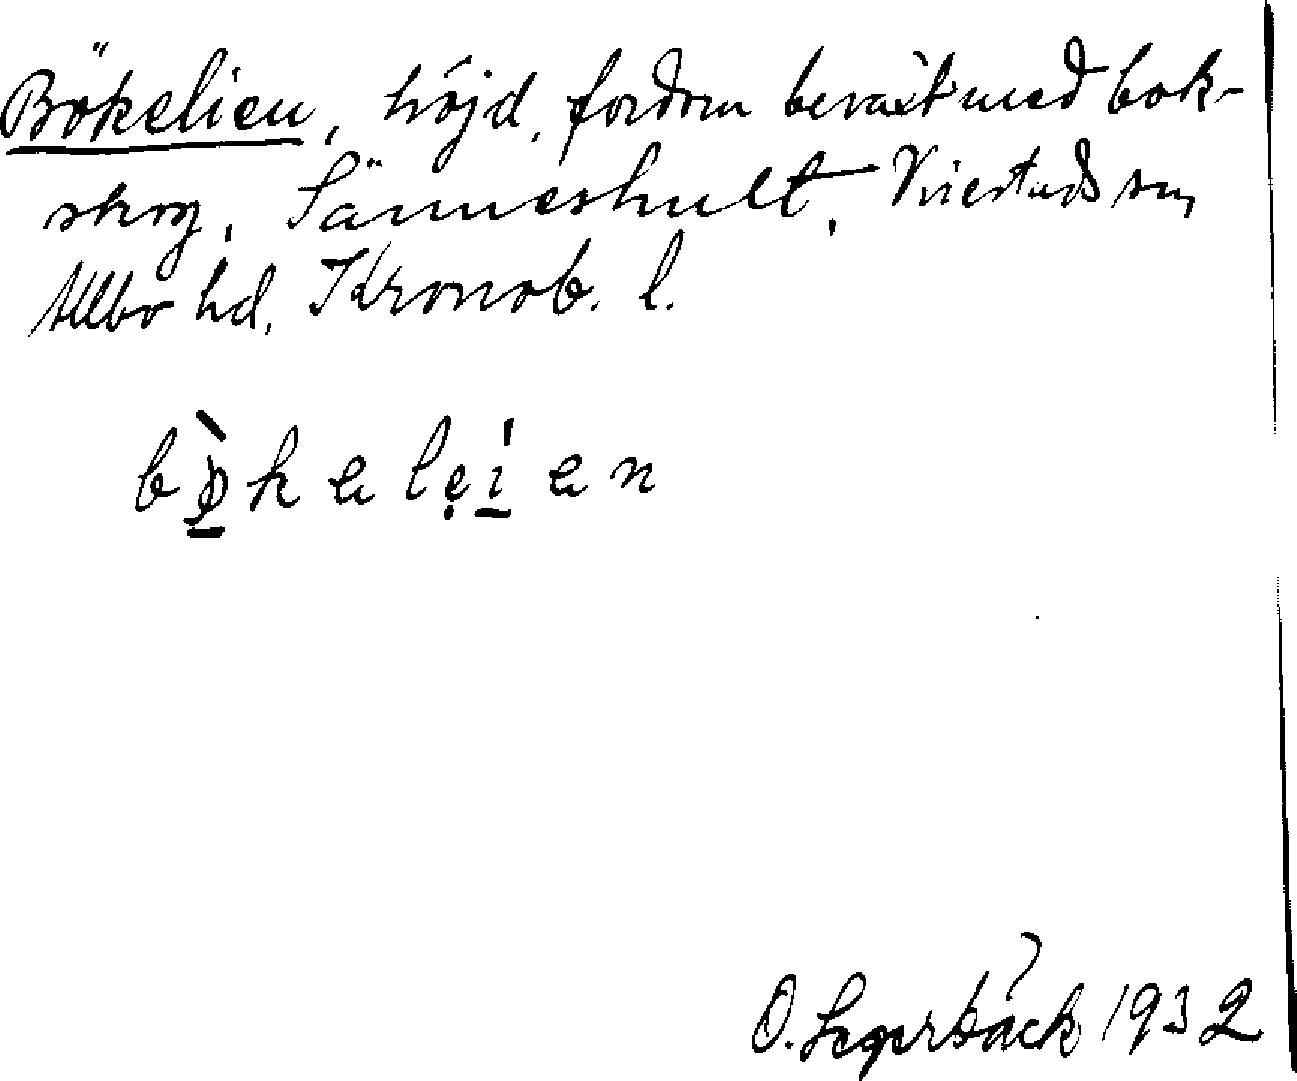 Bökelien, höjd, fordom beväxt med bok-
skog, Sänneshult, Virestads sn,
Allbo hd, Kronob. l.
bø̀kəlẹíən
O. Segerbäck 1932